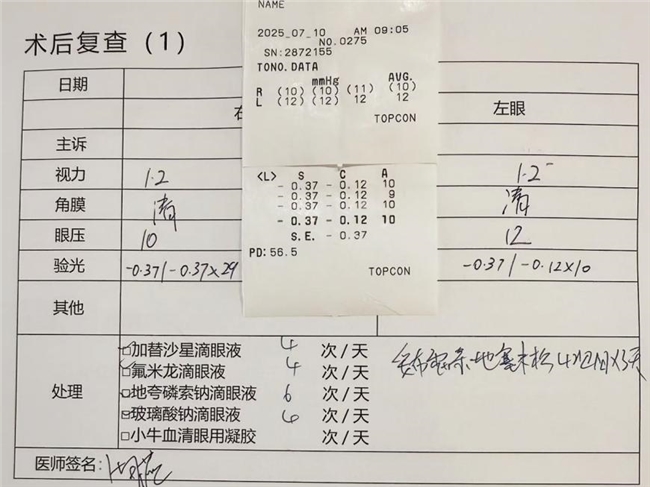 NAME
2025_07_10 AM 09:05
NO.0275
SN:2872155
TONO.DATA
mmHg AVG.
R (10) (10) (11) (10)
L (12) (12) 12 12
TOPCON
<L> S C A
- 0.37 - 0.12 10
- 0.37 - 0.12 9
- 0.37 - 0.12 10
- 0.37 - 0.12 10
S.E. - 0.37
PD:56.5
TOPCON
术后复查（1）
日期
左眼
主诉
视力 1.2 1.2
角膜 清 清
眼压 10 12
验光 -0.37/-0.37×29 -0.37/-0.12×10
其他
处理
加替沙星滴眼液 4 次/天
氟米龙滴眼液 4 次/天
地夸磷索钠滴眼液 6 次/天
玻璃酸钠滴眼液 6 次/天
小牛血清眼用凝胶 次/天
地塞米松
医师签名: